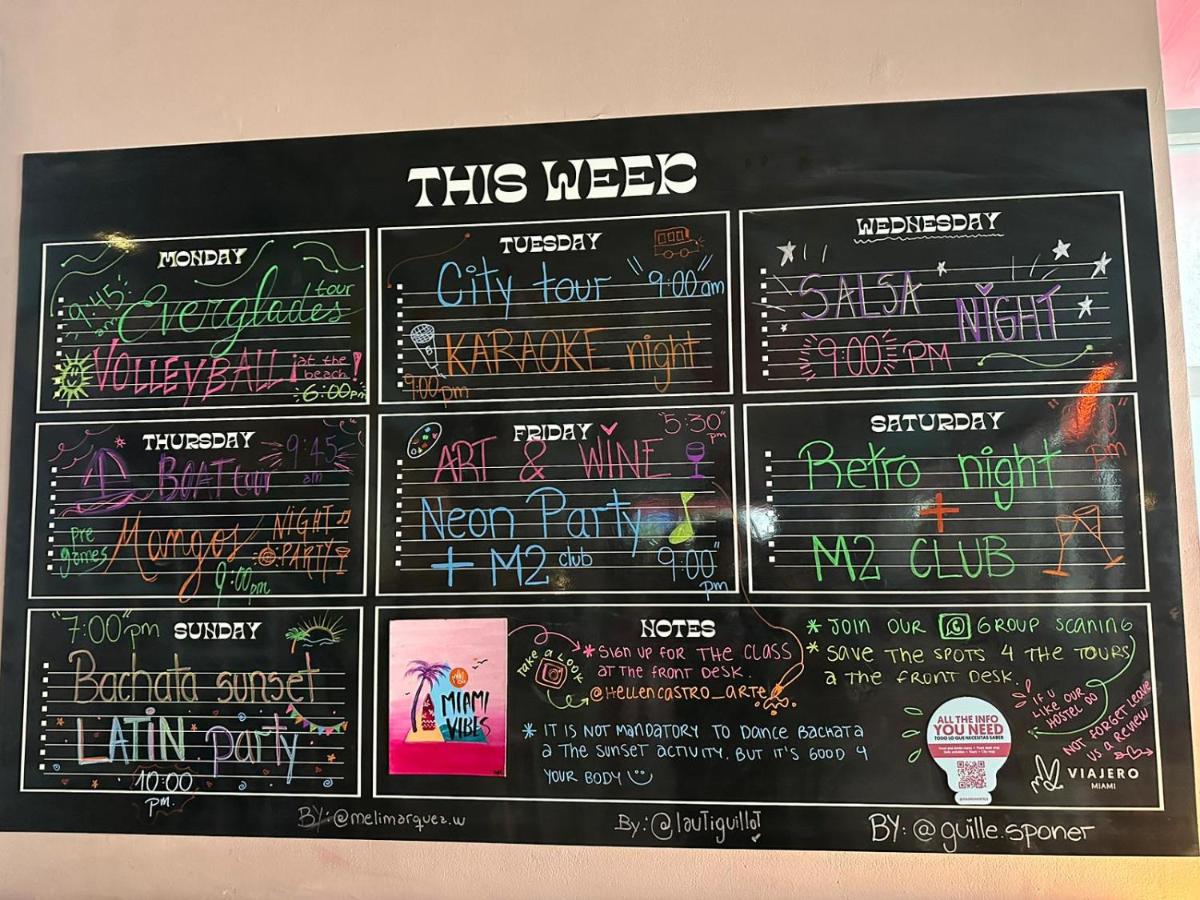 THIS WEEK
MONDAY
9:45 am Everglades tour
VOLLEYBALL ¡at the beach!
6:00pm
TUESDAY
City tour "9:00" am
KARAOKE night
9:00pm
WEDNESDAY
SALSA NIGHT
9:00 PM
THURSDAY
9:45 am
BOAT tour
Pre games Mangos NIGHT PARTY
9:00pm
FRIDAY
"5:30" pm
ART & WINE
Neon Party
+ M2 club 9:00" pm
SATURDAY
pm
Retro night
+
M2 CLUB
"7:00" pm SUNDAY
Bachata sunset
LATIN party
10:00
PM.
NOTES
MIAMI
VIBES
Take a LOOK
* SIGN UP FOR THE CLASS
AT THE FRONT DESK.
@HELLENCASTRO_ARTE
* IT IS NOT MANDATORY TO DANCE BACHATA
a THE SUNSET ACTIVITY. BUT IT'S GOOD 4
YOUR BODY
* JOIN OUR GROUP SCANING
* SAVE THE SPOTS 4 THE TOURS
a THE FRONT DESK.
IF U
LIKE OUR
HOSTEL DO
NOT FORGET LEAVE
US A REVIEW
ALL THE INFO
YOU NEED
TODO LO QUE NECESITAS SABER
VIAJERO
MIAMI
BY: @melimarquez.w
By: @lautiguilloT
BY: @guille.sponer